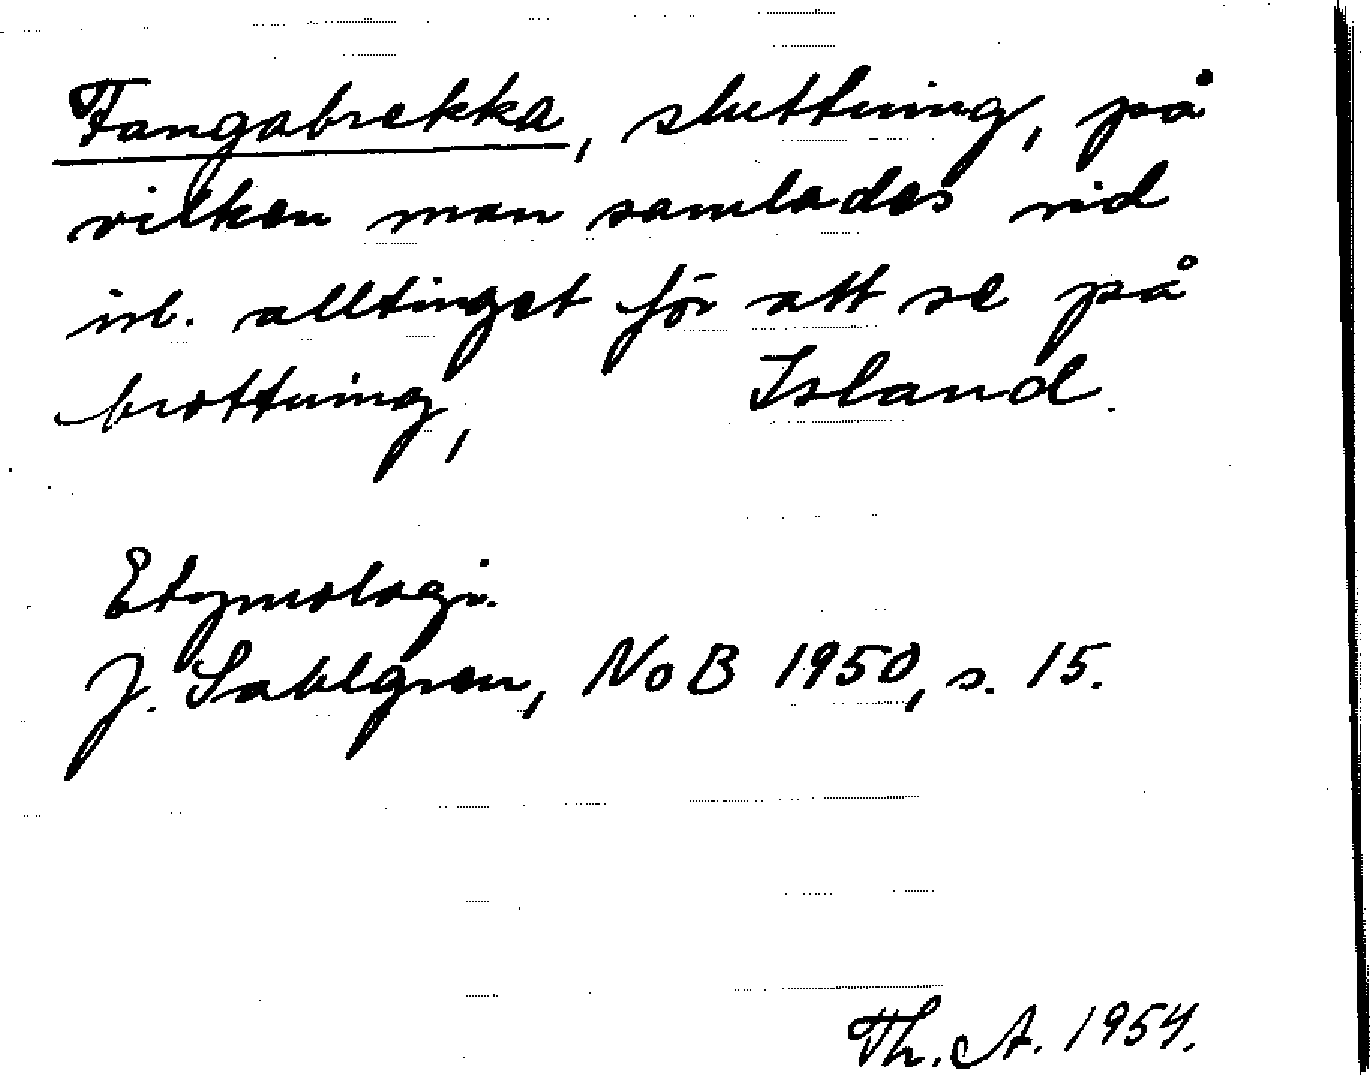 Fangabrekka, sluttning, på
vilken man samlades vid
isl. alltinget för att se på
brottning, Island.
Etymologi.
J. Sahlgren, NoB 1950, s. 15.
Th. A. 1954.